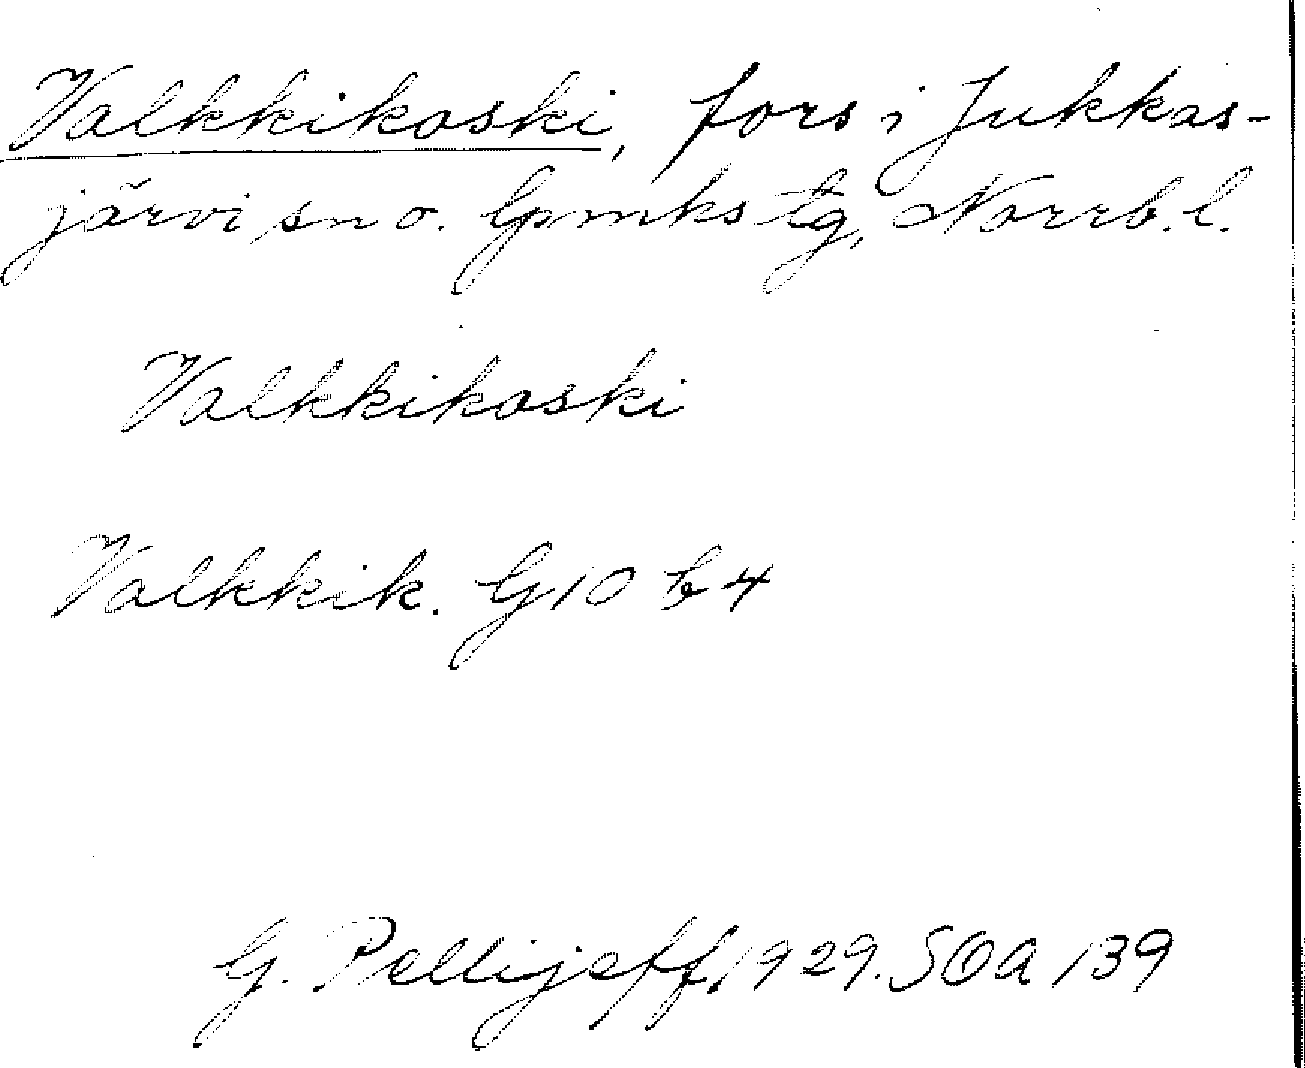 Valkkikoski, fors i Jukkas-
järvi sn o. Gpmks tg, Norrb. l.
Valkkikoski
Valkkik. G 10 b 4
G. Pellijeff 1929. SOA 139